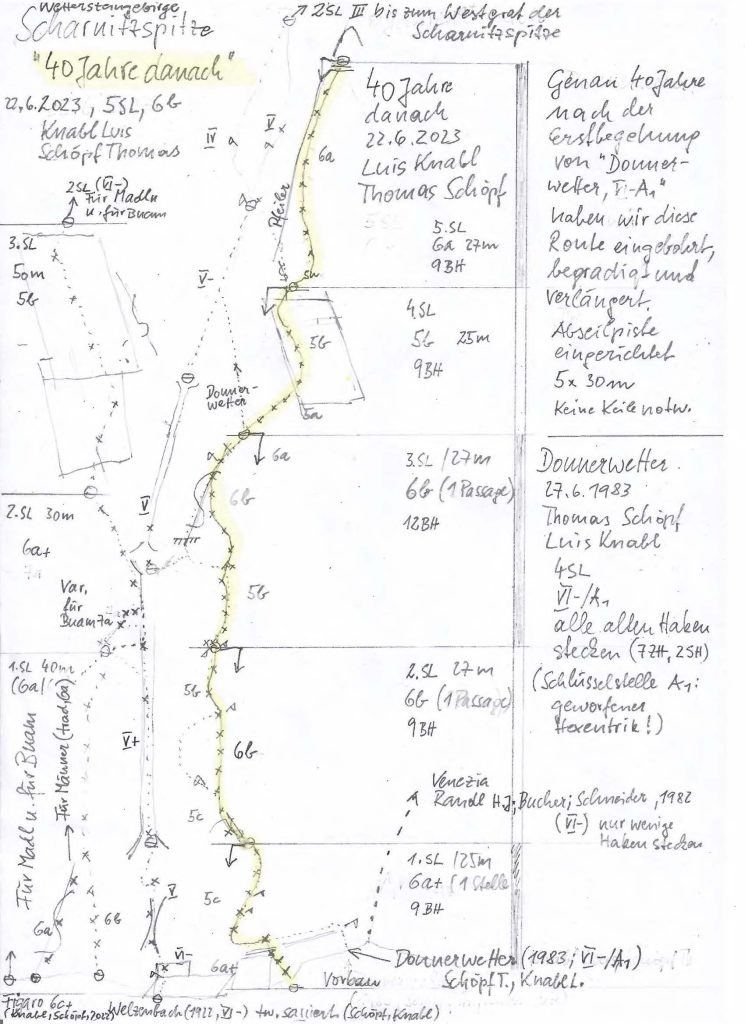 Wettersteingebirge
Scharnitzspitze
"40 Jahre danach"
22.6.2023, 5SL, 6b
Knabl Luis
Schöpf Thomas
2SL III bis zum Westgrat der
Scharnitzspitze
40 Jahre
danach
22.6.2023
Luis Knabl
Thomas Schöpf
5.SL
6a 27m
9BH
Genau 40 Jahre
nach der
Erstbegehung
von "Donner-
wetter, VI-A1"
haben wir diese
Route eingebohrt,
begradigt und
verlängert.
Abseilpiste
eingerichtet
5 x 30m
Keine Keile notw.
IV
V
6a
Pfeiler
SU
2SL (VI-)
Für Madln
u. für Buam
3.SL
50m
5b
V-
4.SL
5b 25m
9BH
5b
5a
Donner-
wetter
6a
3.SL /27m
6b (1 Passage)
12BH
6b
5b
2.SL 30m
6a+
7a
V
Var.
für
Buam 7a
Donnerwetter
27.6.1983
Thomas Schöpf
Luis Knabl
4SL
VI-/A1
alle alten Haken
stecken (7ZH, 2SH)
(Schlüsselstelle A1:
geworfener
Hexentrik!)
1.SL 40m
(6a)
Für Madl u. für Buam
Für Männer (trad, 6a)
V+
5b
6b
5c
2.SL 27m
6b (1 Passage)
9BH
Venezia
Randl H.J; Bucher; Schneider, 1982
(VI-) nur wenige
Haken stecken
1.SL /25m
6a+ (1 Stelle
9BH
6a
6b
V
VI-
5c
6a+
Vorbau
Donnerwetter (1983; VI-/A1)
Schöpf T., Knabl L.
Figaro 6c+
(Knabl, Schöpf, 2022)
Welzenbach (1922, VI-) tw. saniert (Schöpf, Knabl)